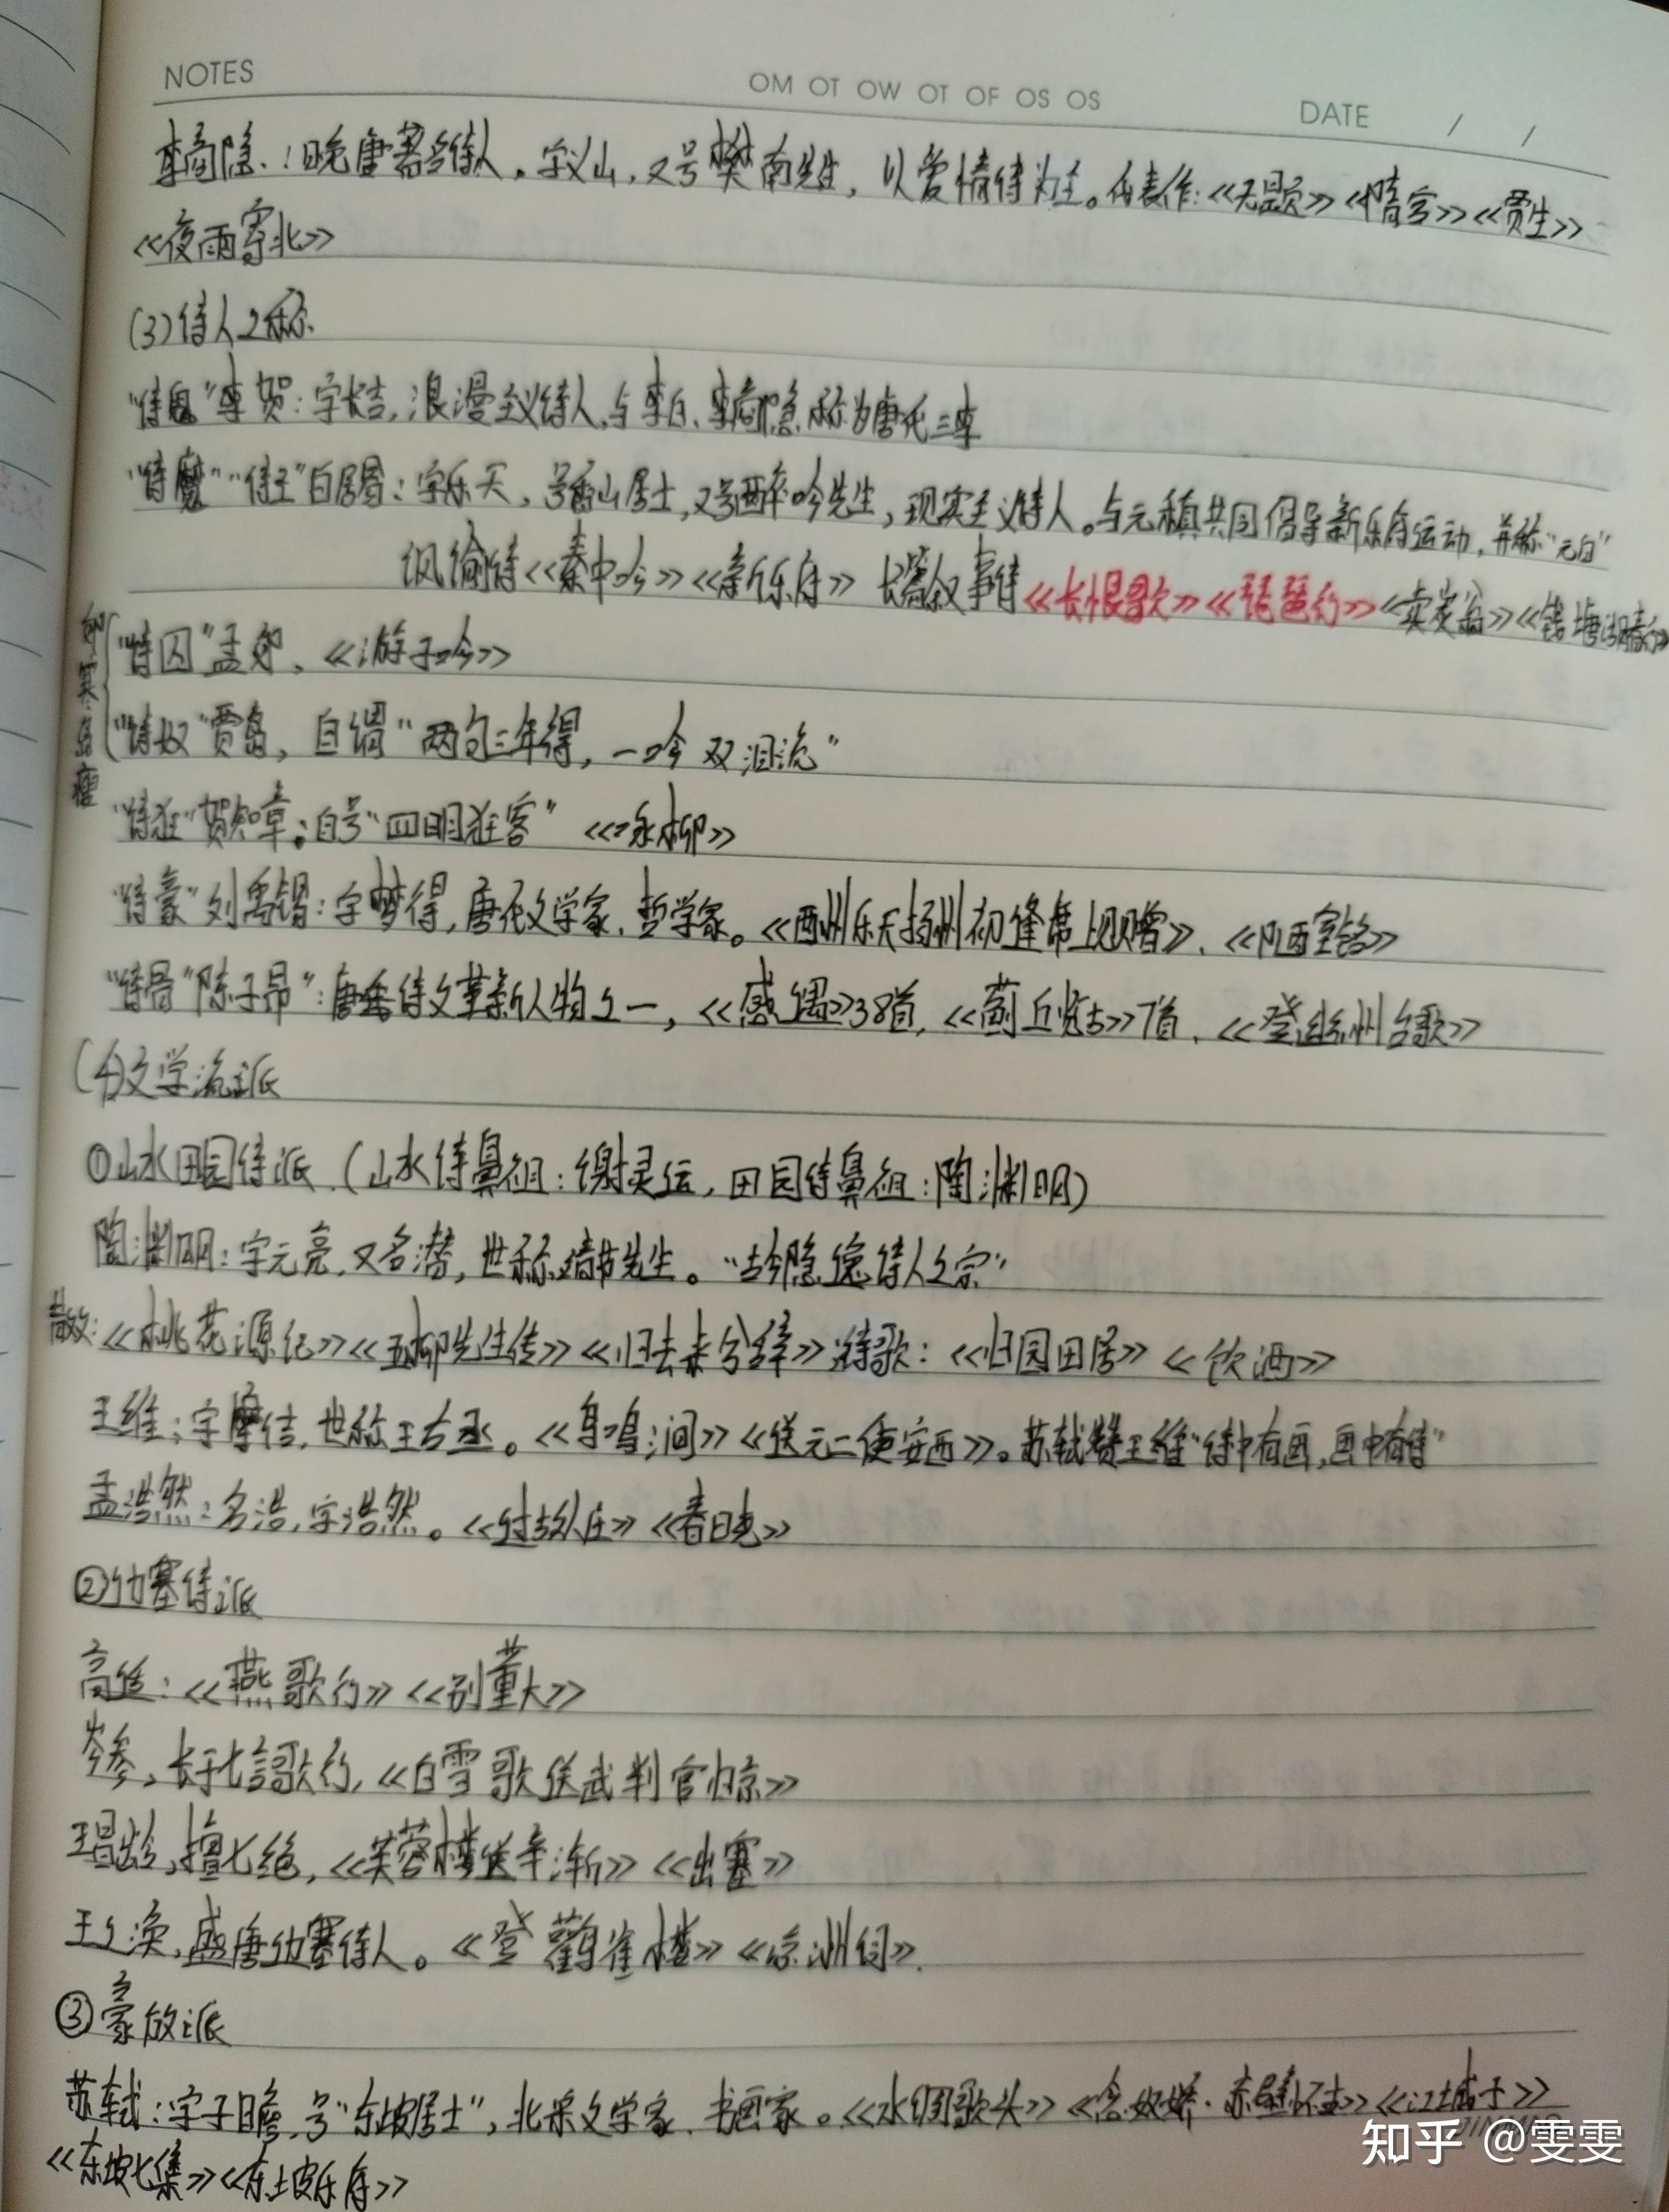 NOTES OM OT OW OT OF OS OS DATE / /
李商隐:晚唐著名诗人。字义山,又号樊南先生,以爱情诗为主。代表作:《无题》《隋宫》《贾生》
《夜雨寄北》
(3)诗人之称
"诗鬼"李贺:字长吉,浪漫主义诗人,与李白、李商隐称为唐代三李
"诗魔""诗王"白居易:字乐天,号香山居士,又号醉吟先生,现实主义诗人。与元稹共同倡导新乐府运动,并称"元白"
讽喻诗《秦中吟》《新乐府》 长篇叙事诗《长恨歌》《琵琶行》《卖炭翁》《钱塘湖春行》
郊寒岛瘦
"诗囚"孟郊、《游子吟》
"诗奴"贾岛,自谓"两句三年得,一吟双泪流"
"诗狂"贺知章:自号"四明狂客" 《咏柳》
"诗豪"刘禹锡:字梦得,唐代文学家、哲学家。《酬州乐天扬州初逢席上见赠》、《陋室铭》
"诗骨"陈子昂":唐代诗文革新人物之一,《感遇》38首,《蓟丘览古》7首、《登幽州台歌》
(4)文学流派
①山水田园诗派.(山水诗鼻祖:谢灵运,田园诗鼻祖:陶渊明)
陶渊明:字元亮,又名潜,世称靖节先生。"古今隐逸诗人之宗"
散文:《桃花源记》《五柳先生传》《归去来兮辞》诗歌:《归园田居》《饮酒》
王维:字摩诘,世称王右丞。《鸟鸣涧》《送元二使安西》。苏轼赞王维"诗中有画,画中有诗"
孟浩然:名浩,字浩然。《过故人庄》《春晓》
②边塞诗派
高适:《燕歌行》《别董大》
岑参,长于七言歌行,《白雪歌送武判官归京》
王昌龄,擅七绝,《芙蓉楼送辛渐》《出塞》
王之涣,盛唐边塞诗人。《登鹳雀楼》《凉州词》.
③豪放派
苏轼:字子瞻,号"东坡居士",北宋文学家、书画家。《水调歌头》《念奴娇·赤壁怀古》《江城子》
《东坡七集》《东坡乐府》
知乎 @雯雯